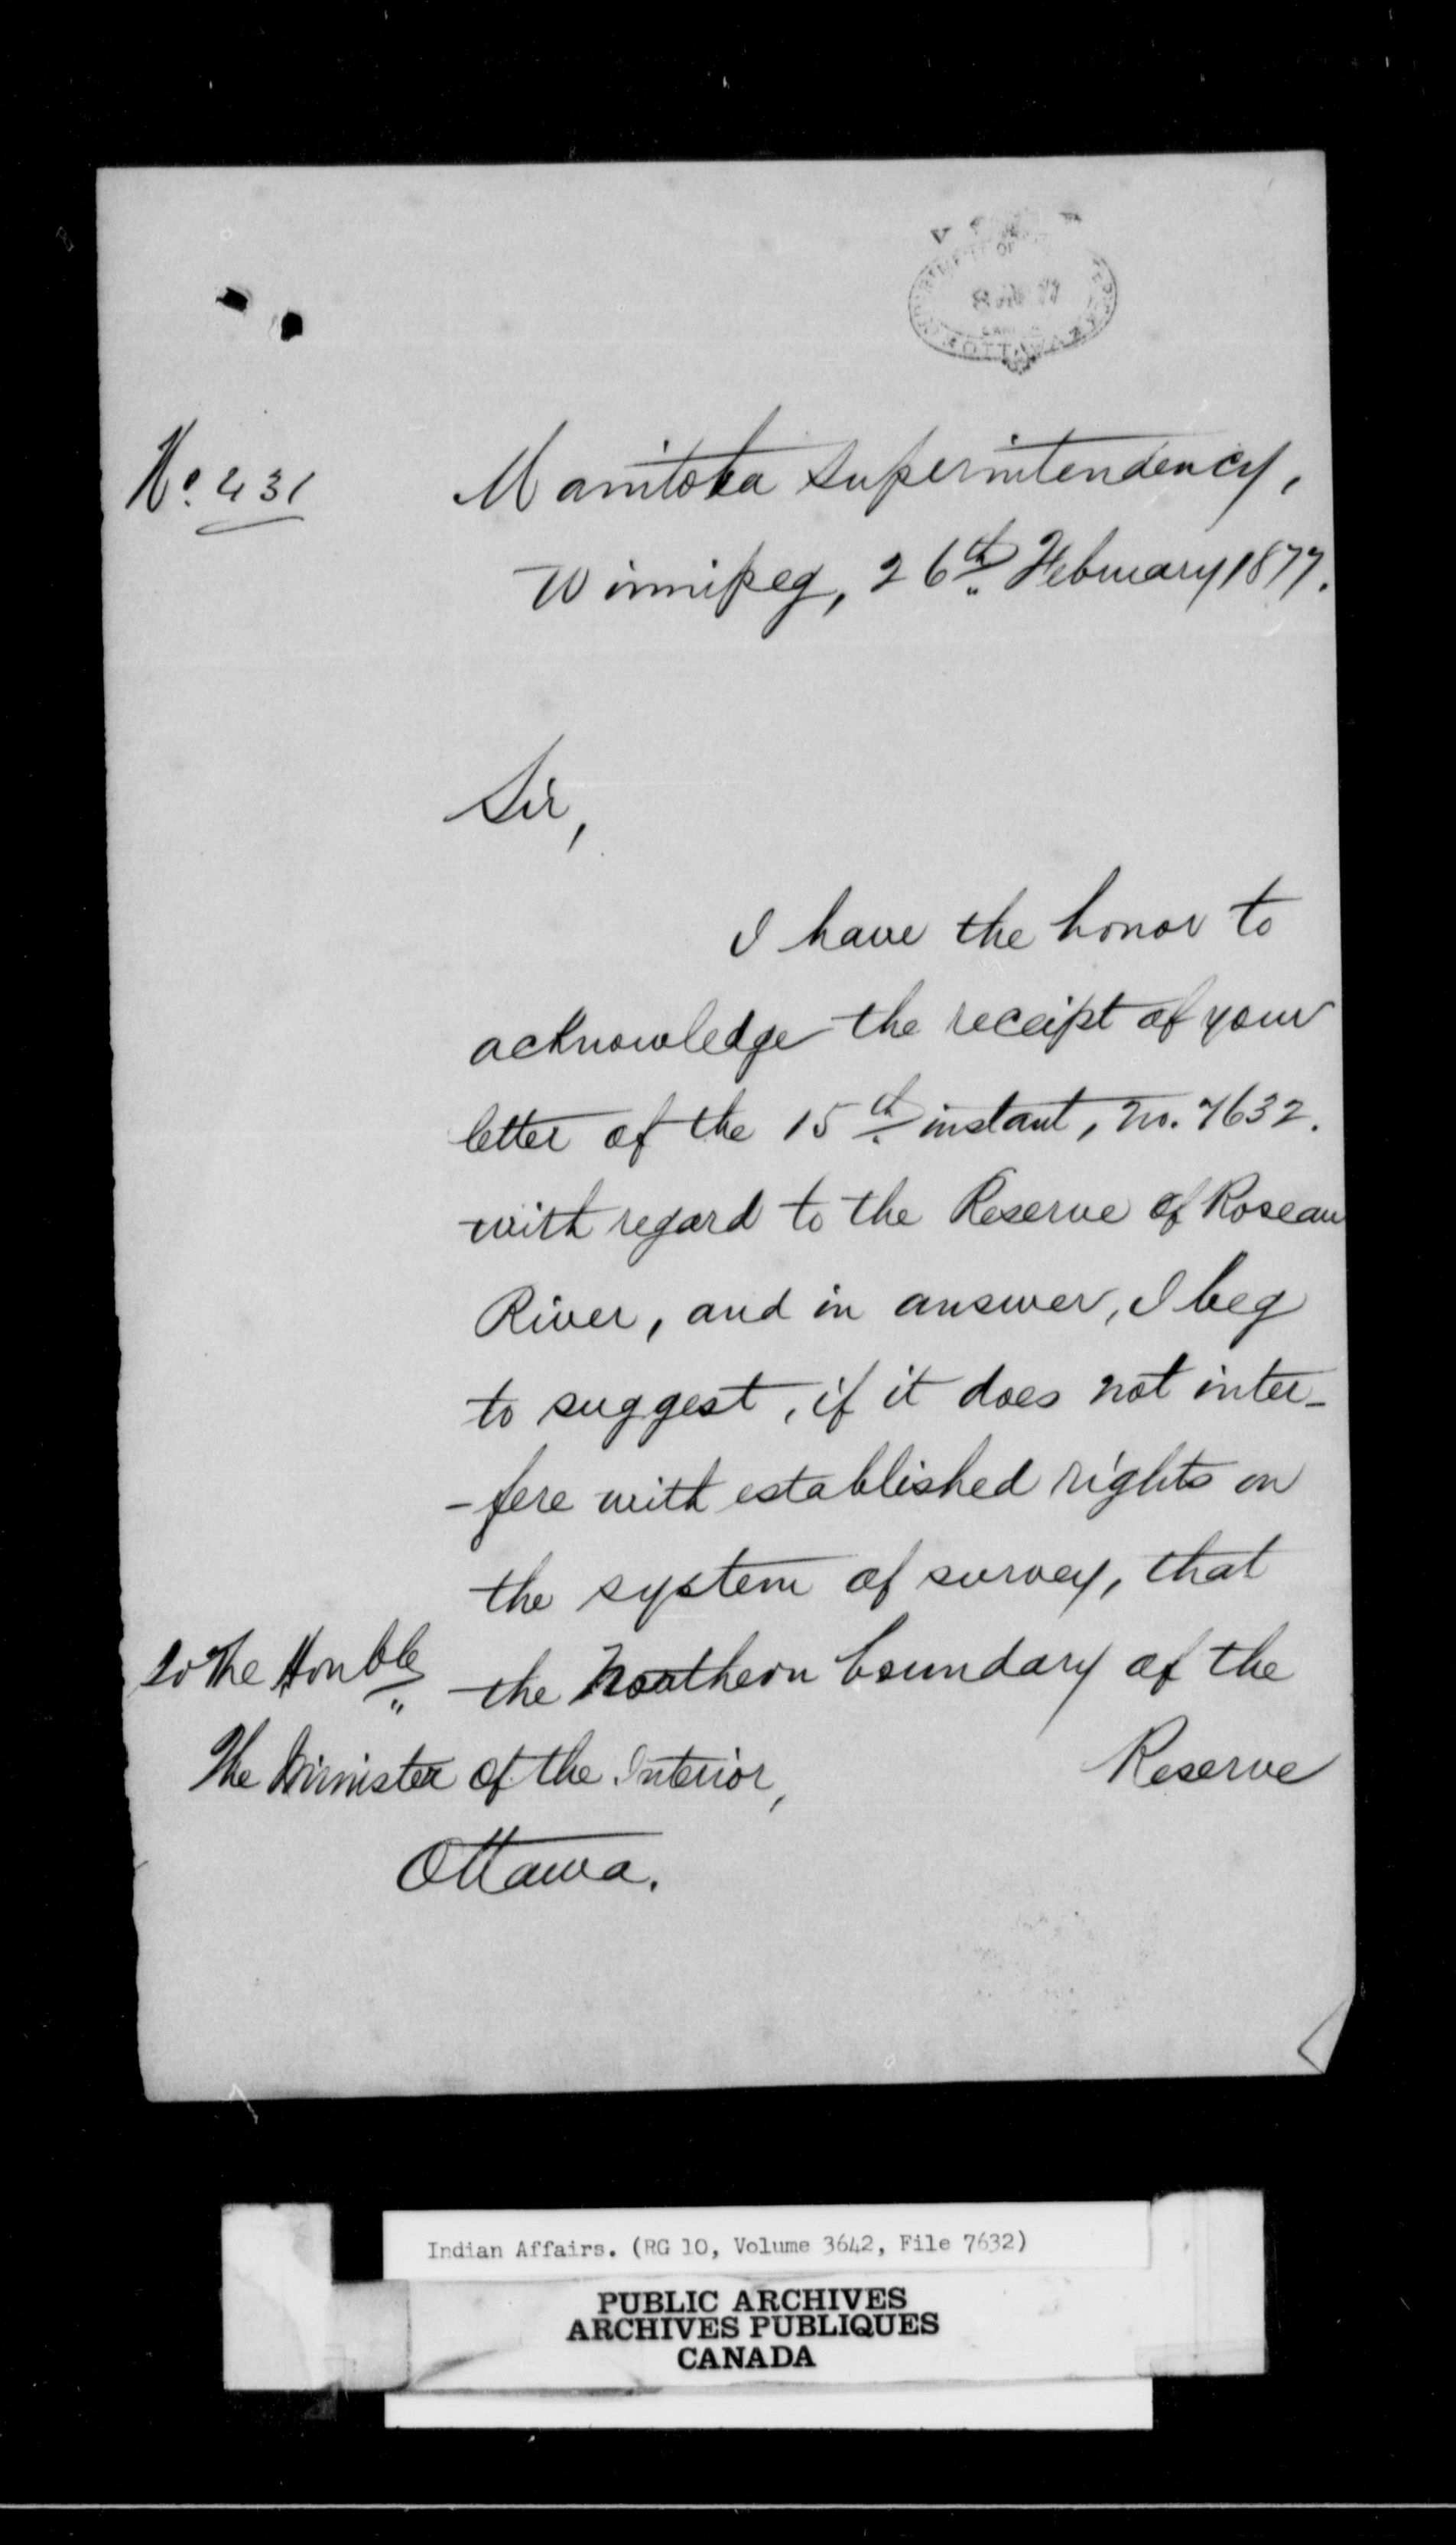 No. 431
Manitoba Superintendency,
Winnipeg, 26th February 1877.
Sir,
I have the honor to
acknowledge the receipt of your
letter of the 15th instant, no. 7632.
with regard to the Reserve of Roseau
River, and in answer, I beg
to suggest, if it does not inter-
-fere with established rights on
the system of survey, that
the Northern boundary of the
Reserve
To the Honble
The Minister of the Interior,
Ottawa.
Indian Affairs. (RG 10, Volume 3642, File 7632)
PUBLIC ARCHIVES
ARCHIVES PUBLIQUES
CANADA